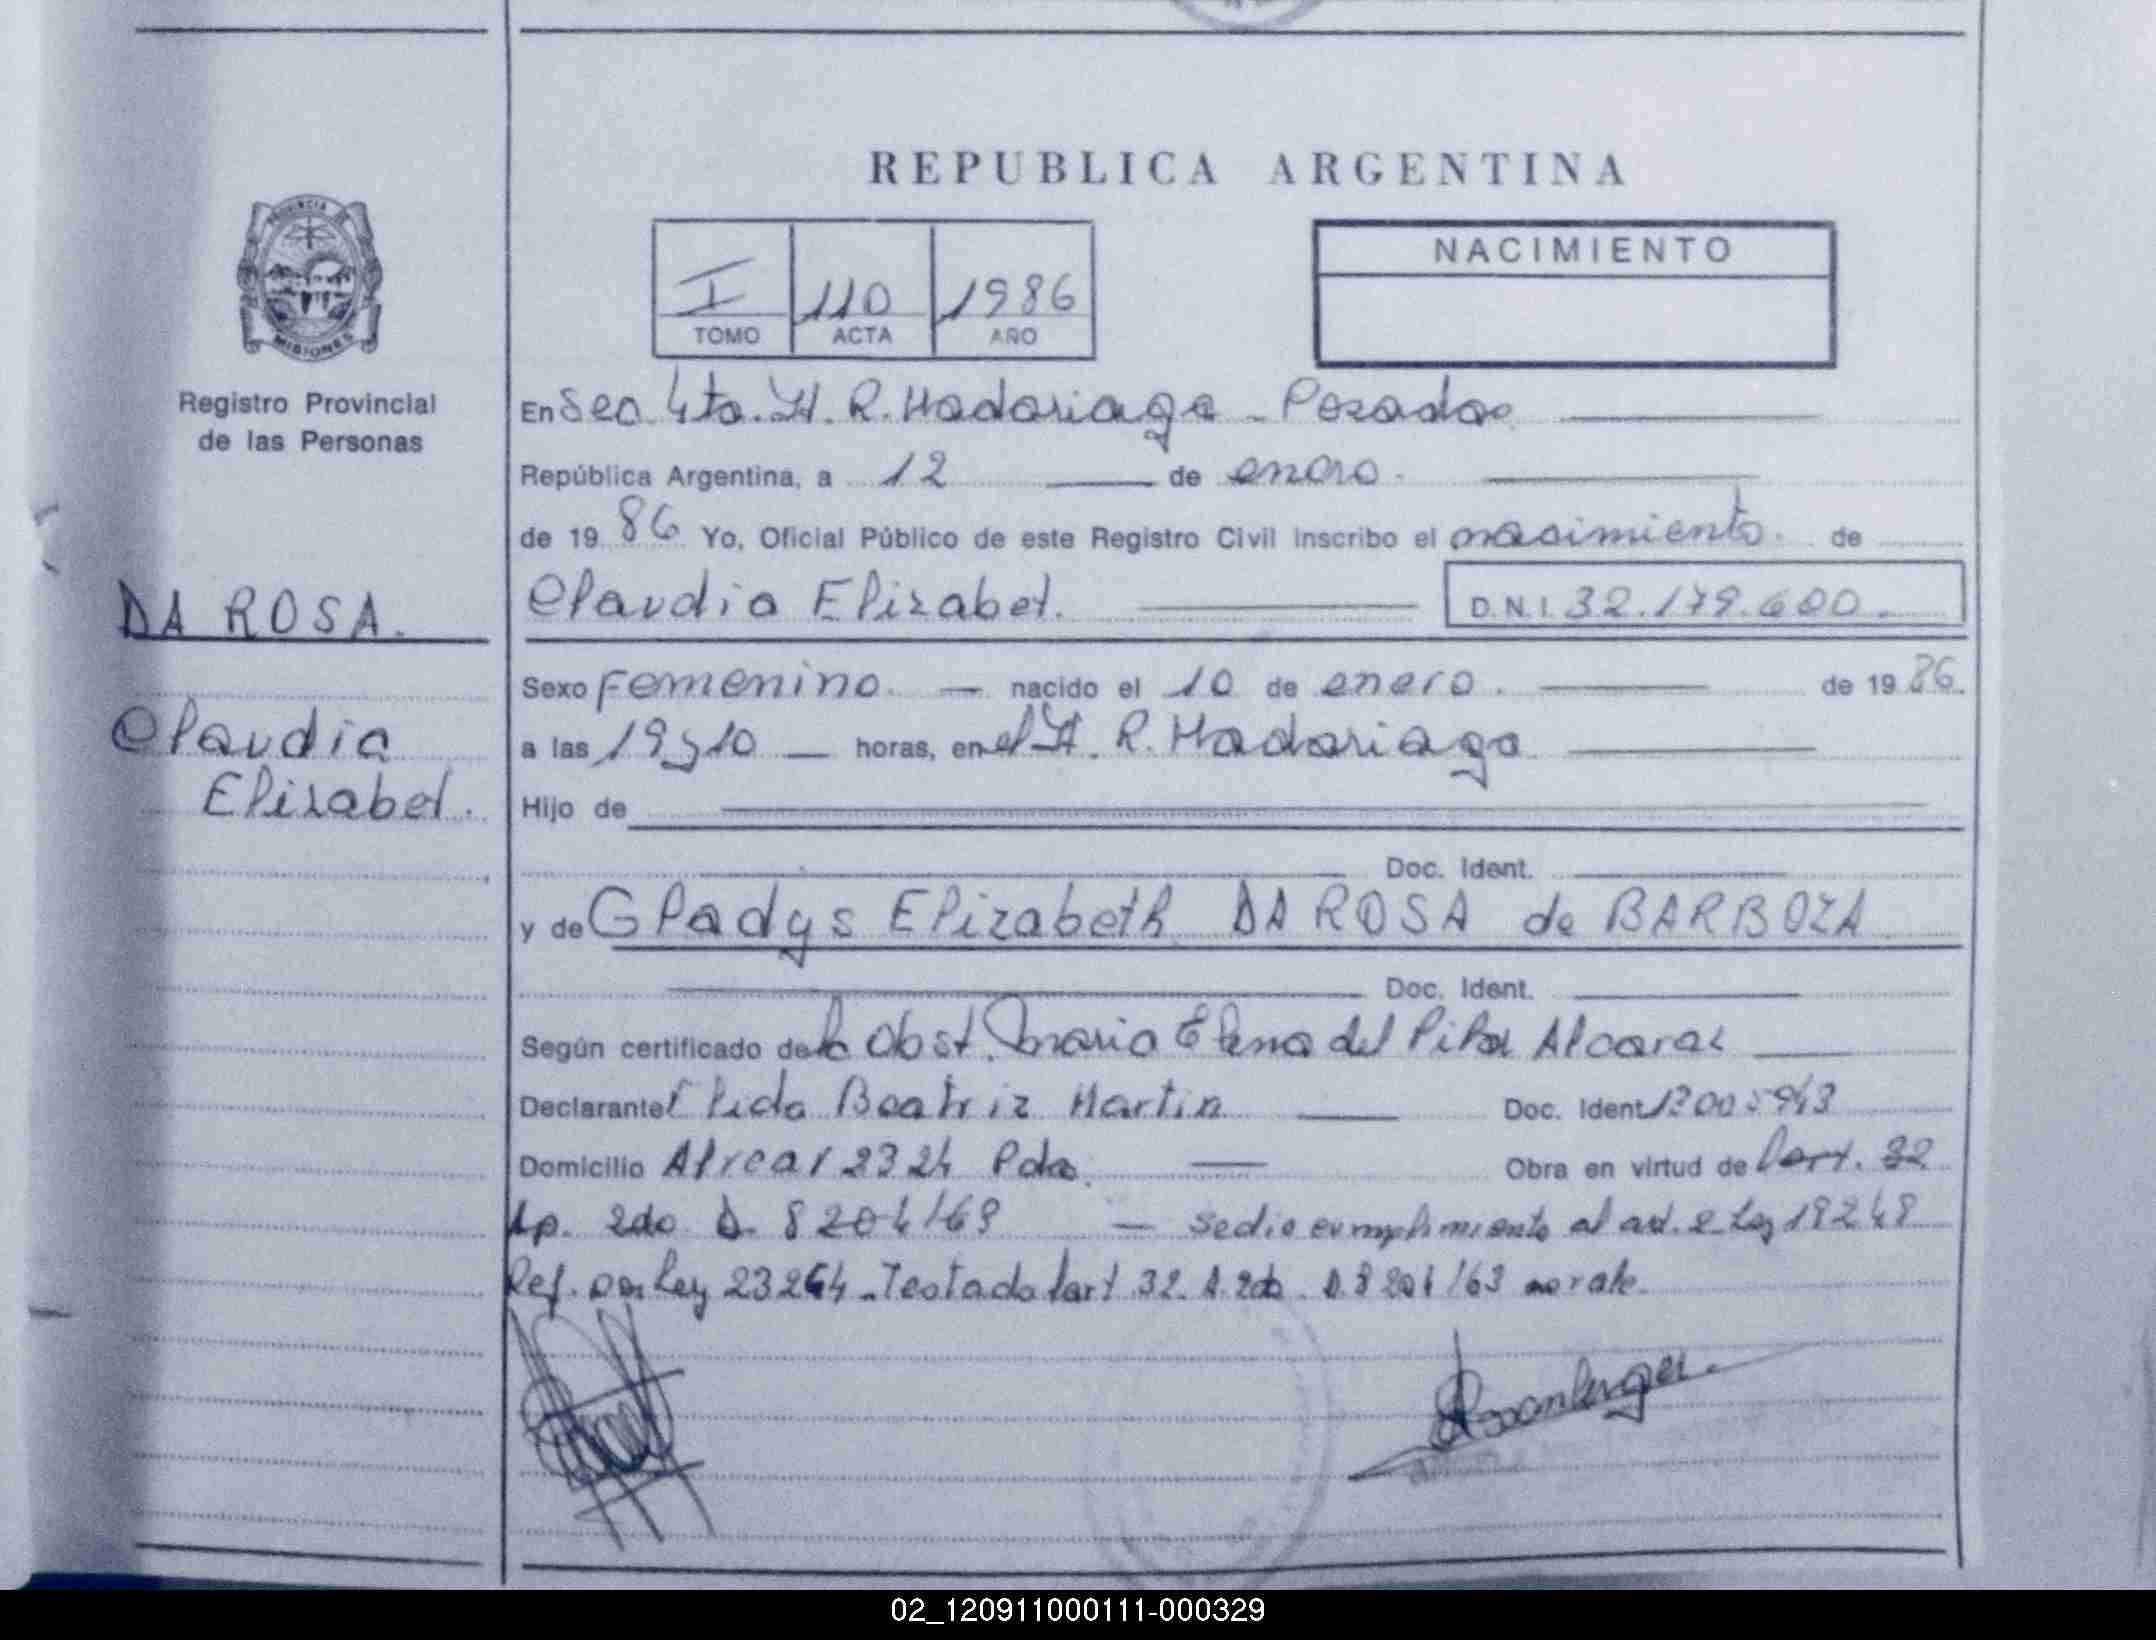 REPUBLICA ARGENTINA
PROVINCIA
MISIONES
Registro Provincial
de las Personas
DA ROSA.
Claudia
Elizabet.
NACIMIENTO
I 110 1986
TOMO ACTA AÑO
En Sec 4ta. H. R. Madariaga - Posadas
República Argentina, a 12 de enero.
de 19 86 Yo, Oficial Público de este Registro Civil inscribo el nacimiento. de
Claudia Elizabet. D.N.I. 32.179.600.
Sexo Femenino. nacido el 10 de enero. de 19 86.
a las 19 y 10 horas, en el H. R. Madariaga
Hijo de
Doc. Ident.
y de Gladys Elizabeth DA ROSA de BARBOZA
Doc. Ident.
Según certificado de la Obst. Maria Elena del Pilar Alcaraz
Declarante Elida Beatriz Martin Doc. Ident
Domicilio Alvear 2324 Pdas. Obra en virtud de l'art. 32
Ap. 2do D. 8204/63 - Se dio cumplimiento al art. 2 Ley 18248
Ref. por Ley 23264 - Testado l'art 32. A. 2do. D. 8204/63 no vale.
02_120911000111-000329